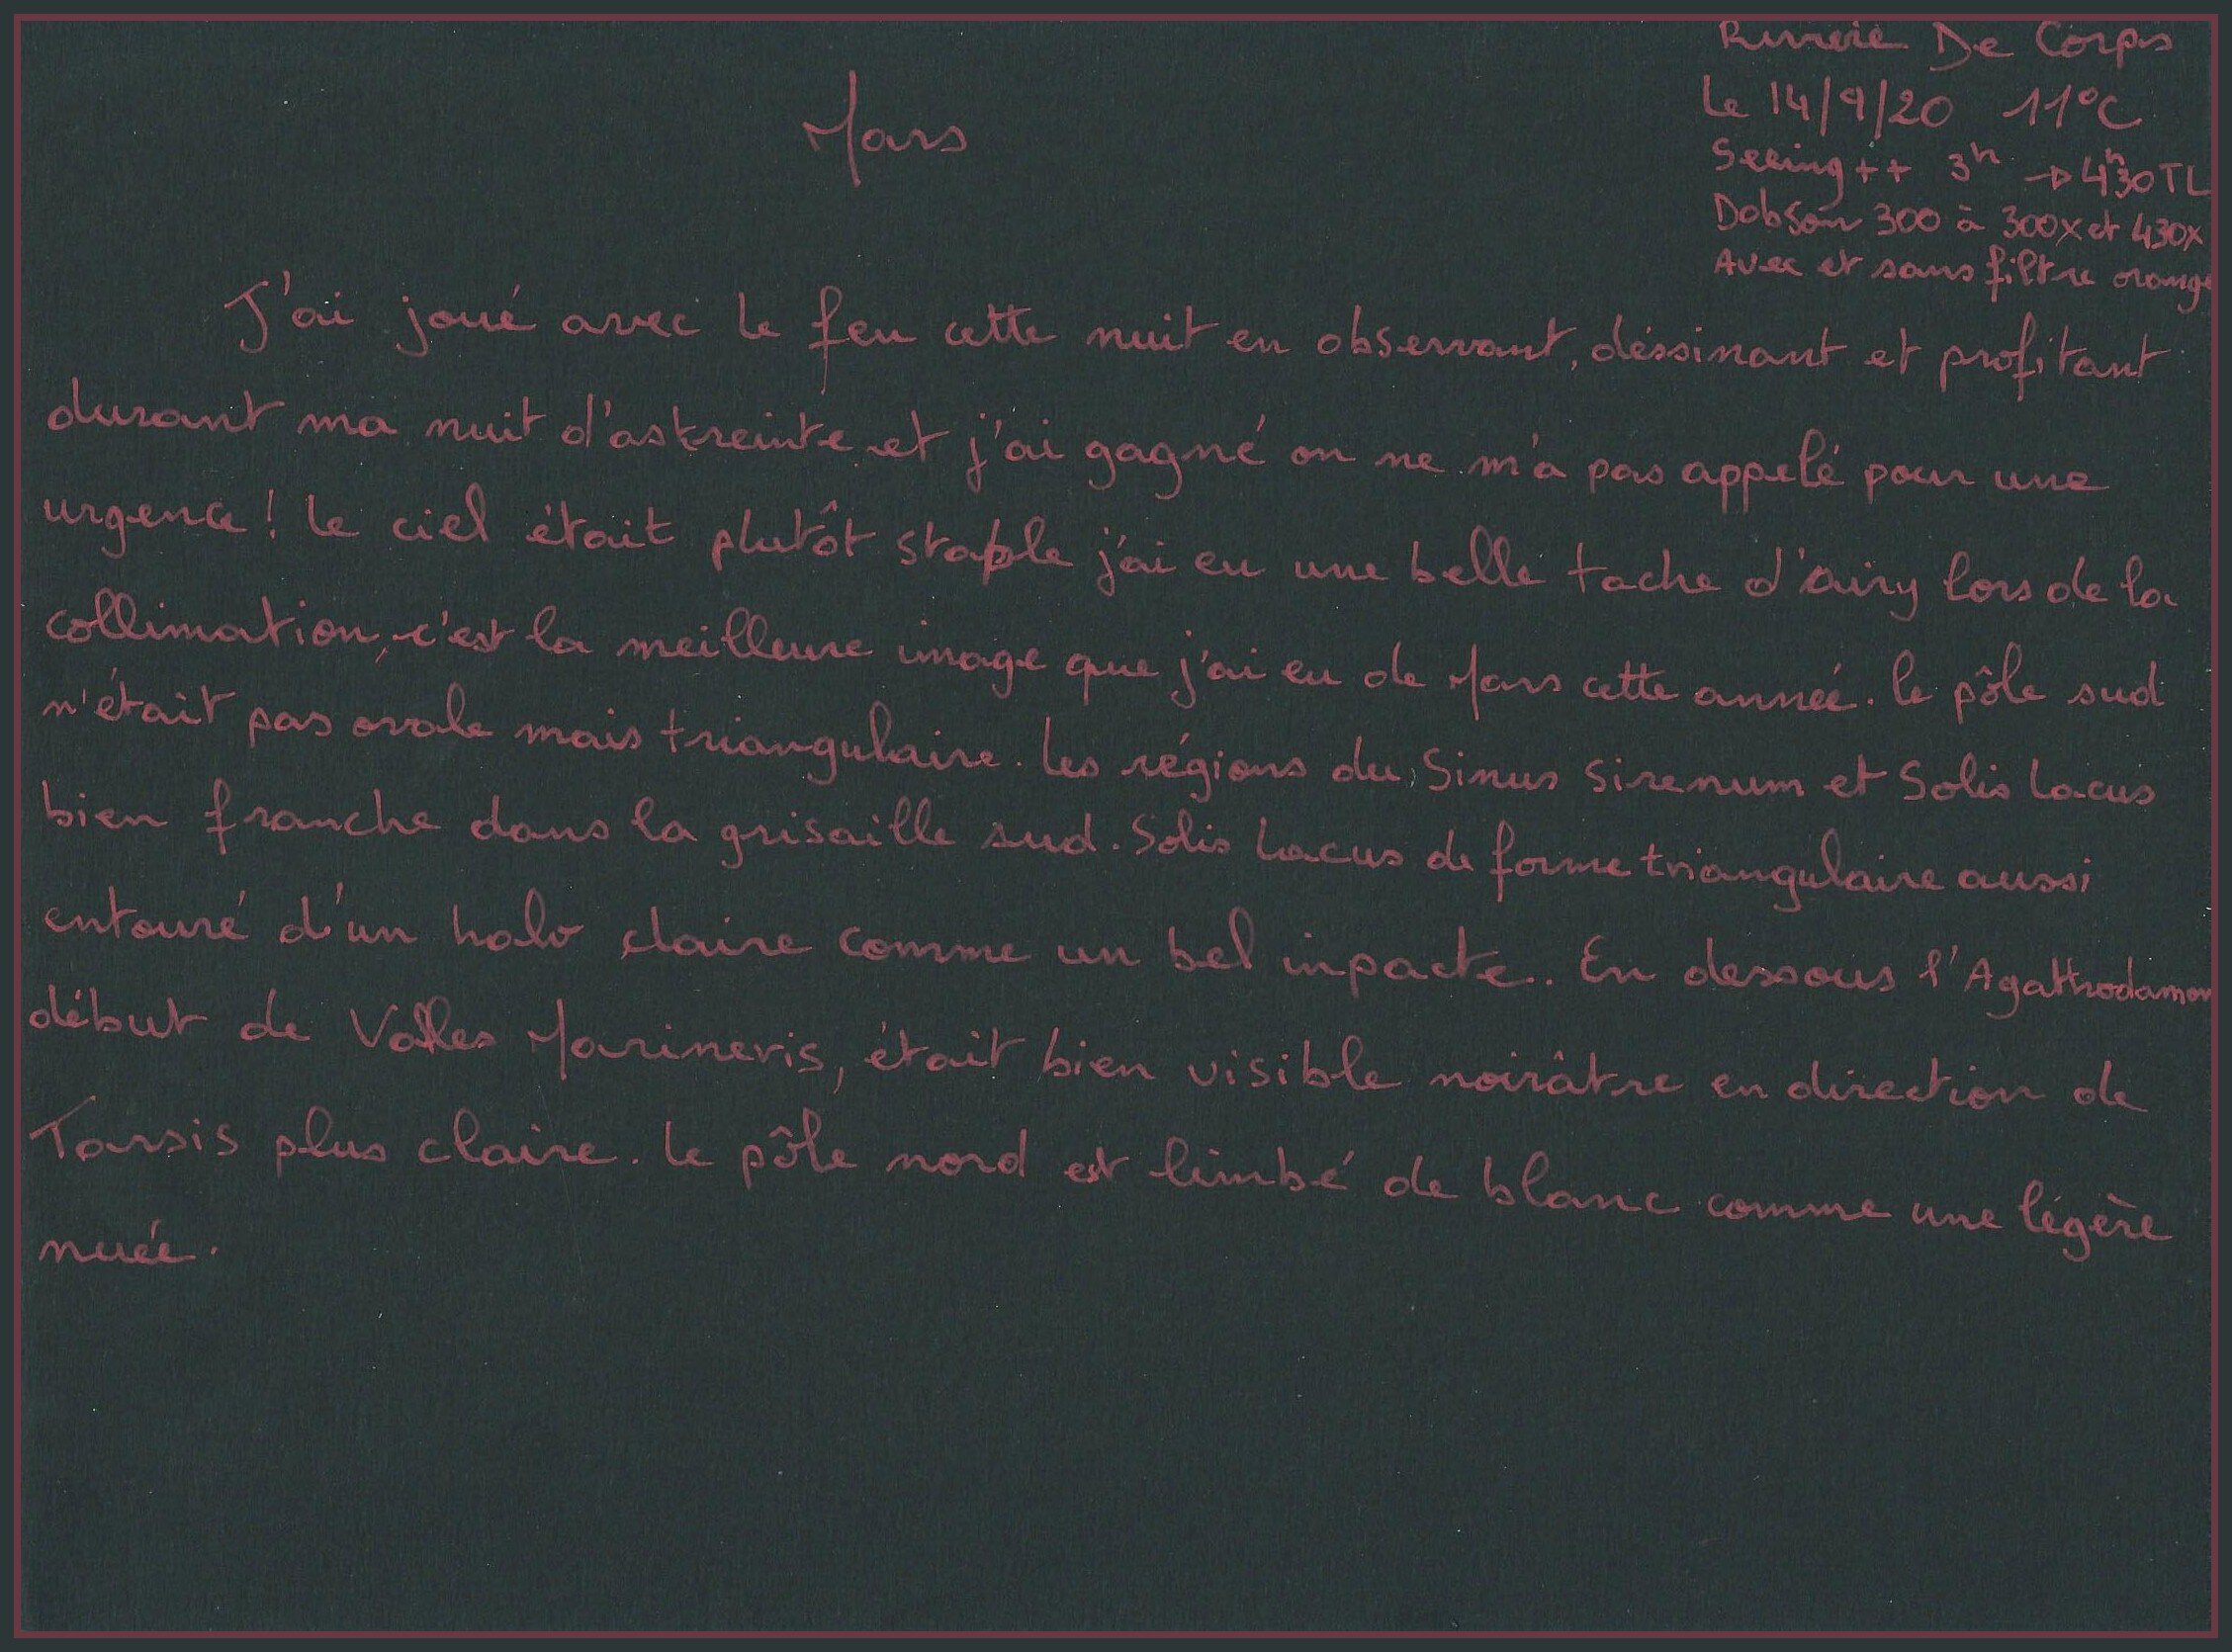 Mars
Riviere De Corps
Le 14/9/20 11°C
Seeing ++ 3h → 4h30 TL
Dobson 300 à 300x et 430x
Avec et sans filtre orange
J'ai joué avec le feu cette nuit en observant, déssinant et profitant
durant ma nuit d'astreinte et j'ai gagné on ne m'a pas appelé pour une
urgence! Le ciel était plutôt stable j'ai eu une belle tache d'airy lors de la
collimation, c'est la meilleure image que j'ai eu de Mars cette année. Le pôle sud
n'était pas ovale mais triangulaire. Les régions du Sinus Sirenum et Solis Lacus
bien franche dans la grisaille sud. Solis Lacus de forme triangulaire aussi
entouré d'un halo claire comme un bel inpacte. En dessous l'Agathodamon
début de Valles Marineris, était bien visible noirâtre en direction de
Tarsis plus claire. Le pôle nord est limbé de blanc comme une légère
nuée.